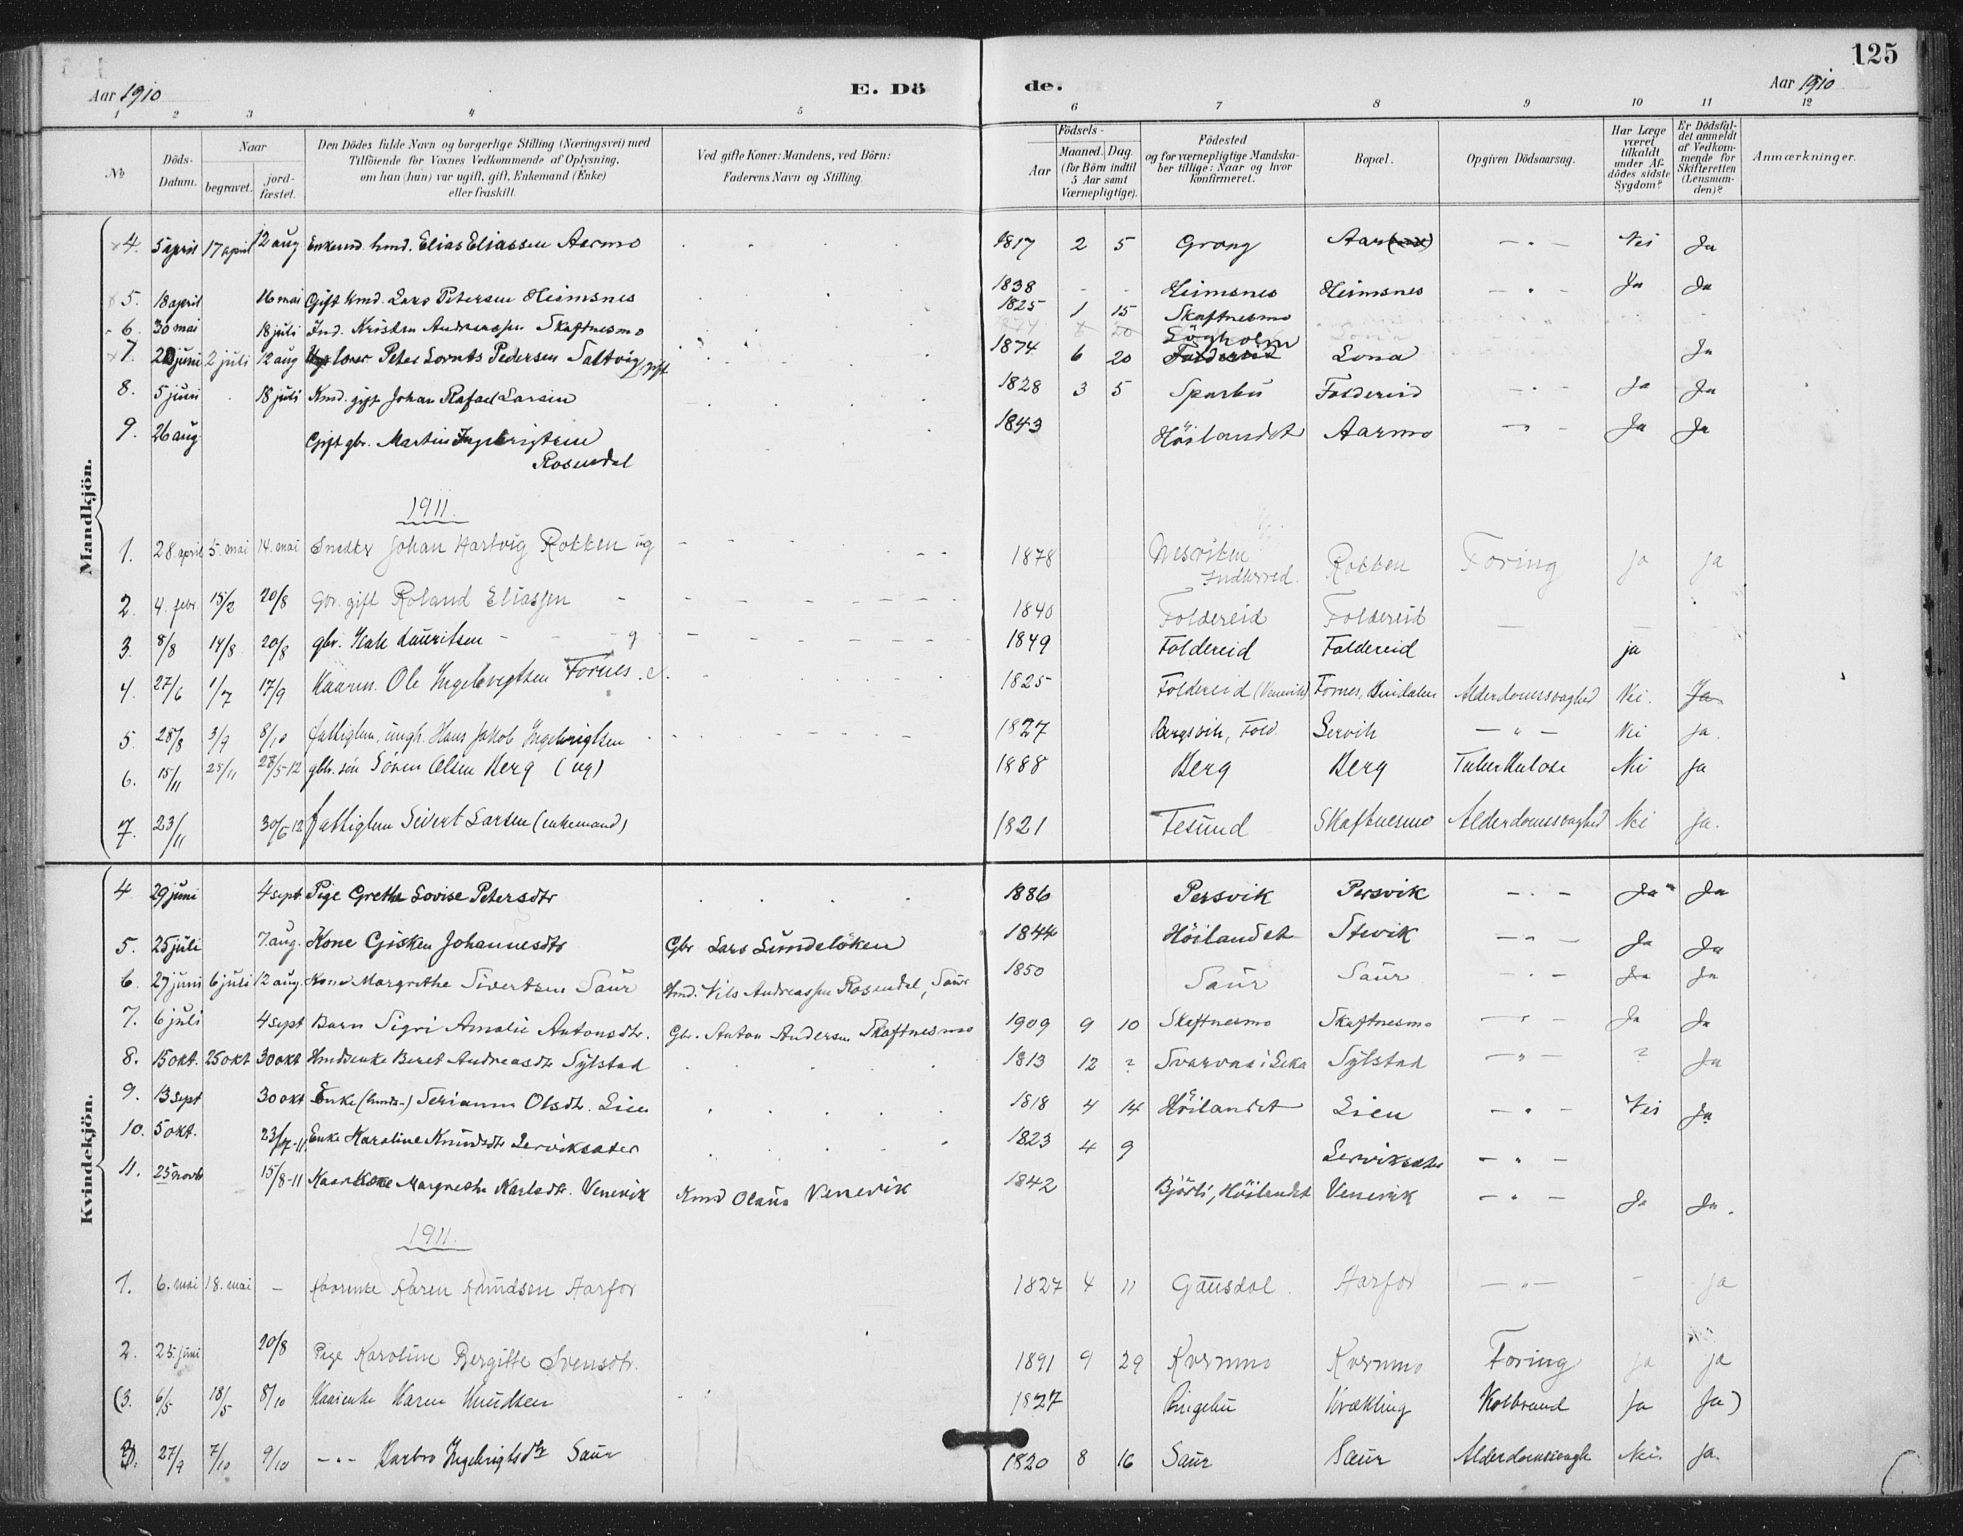 125
Aar 1910
E. Dö
de.
Aar 1910
1 2 3 4 5 6 7 8 9 10 11 12
№
Döds-Datum.
Naar
begravet.
jord-fæstet.
Den Dödes fulde Navn og borgerlige Stilling (Næringsvei) med
Tilföiende for Voxnes Vedkommende af Oplysning,
om han (hun) var ugift, gift, Enkemand (Enke)
eller fraskilt.
Ved gifte Koner: Mandens, ved Börn:
Faderens Navn og Stilling.
Födsels-
Aar
Maaned. Dag.
(for Börn indtil
5 Aar samt
Værnepligtige).
Födested
og for værnepligtige Mandska-
ber tillige: Naar og hvor
konfirmeret.
Bopæl.
Opgiven Dödsaarsag.
Har Læge
været
tilkaldt
under Af-
dödes sidste
Sygdom?
Er Dödsfal-
det anmeldt
af Vedkom-
mende for
Skifteretten
(Lensman-
den)?
Anmærkninger.
Mandkjön.
4. 5 april 17 april 12 aug Enkemd. hmd. Elias Eliassen Aarmo 1817 2 5 Grong Nei Ja
5. 18 april 16 mai Gift kmd. Lars Petersen Heimsnes 1838 - - Heimsnes Heimsnes - " - Ja Ja
6. 30 mai 18 juli Ind. Kristen Andreassen Skaftnesmo 1825 1 15 Skaftnesmo
7. 20 juni 2 juli 12 aug Peter Lornts Pedersen Saltvig, gift 1874 6 20 Löngholm Lona Ja
8. 5 juni 18 juli Kmd. gift Johan Rafael Larsen 1828 3 5 Sparbu Foldereid - " - Ja Ja
9. 26 aug Gift gbr. Martin Ingebrigtsen 1843 Höilandet Aarmo - " - Ja Ja
Rosendal
1911.
1. 28. april 5. mai 14. mai Snedker Johan Hartvig Rokken ug 1878 Rokken Toring ja ja
Inderöed.
2. 4. febr. 15/2 20/8 Gbr. gift Roland Eliassen 1840 Foldereid Foldereid
3. 8/8 14/8 20/8 gbr. Isak Lauritsen - - - g 1849 Foldereid Foldereid ja
4. 27/6 1/7 17/9 Kaarm. Ole Ingebrigtsen Fornes. e. 1825 Foldereid (Venevik) Fornes, Alderdomssvaghed Nei. Ja
5. 28/8 3/9 8/10 fattiglem, ungk. Hans Jakob Ingebrigtsen 1827 Bergsvik, Fold. Servik - " - Nei ja.
6. 15/11 25/11 28/5-12 gbr. sön Sören Olsen Berg (ug) 1888 Berg Berg Tuberkulose Nei ja
7. 23/11 30/6 12 fattiglem Sivert Larsen (enkemand) 1821 Tesund Skaftnesmo Alderdomssvaghed Nei ja.
Kvindekjön.
4 29 juni 4 sept Pige Grethe Lovise Petersdtr 1886 Persvik Persvik - " - Ja Ja
5. 25 juli 7. aug. Kone Gisken Johannesdtr Gbr Lars Lundelöken 1844 Höilandet Stevik - " - Ja Ja
6. 27 juni 6 juli 12 aug. Kone Margrethe Sivertsen Saur Hmd. Nils Andreassen Rosendal, Saur 1850 Saur Saur - " - Ja Ja
7. 6 juli 4 sept Barn Sigri Amalie Antonsdtr. Gbr. Anton Andersen Skaftnesmo 1909 9 10 Skaftnesmo Skaftnesmo - " - Ja Ja
8. 15 okt. 25 okt 30 okt Hmdsenke Beret Andreasdtr Sylstad 1813 12 ? Svarvaa i Leka Sylstad - " - ? Ja
9. 13 sept 30 okt Enke (hmds.) Serianna Olsdtr. Lien 1818 4 14 Höilandet Lien - " - Nei Ja
10. 5 okt. 23/7-11 Enke Karoline Knudsdtr Lerviksæter 1823 4 9 Lerviksæter - " -
11. 25 novb 15/8-11 Margrethe Karlsdtr. Venevik Kmd Olaus Venevik 1842 Björli, Höilandet Venevik - " - Ja Ja.
1911.
1. 6. mai 18. mai - Kaarenke Karen Knudsen Harfor 1827 4 11 Gausdal. Harfor - " - - ja
2. 25. juni 20/8 Pige Karoline Bergitte Svensdtr. 1891 9 29 Kvernmo Kvernmo Toring ja ja
(3. 6/5 18/5 8/10 Kaarenke Karen Knudsen 1827 Ringebu Krækling Kolbrand Ja Ja)
3. 27/9 7/10 9/10 - " - Barbro Ingebrigtsdtr Saur 1820 8 16 Saur Saur Alderdomssvagh Nei. ja.